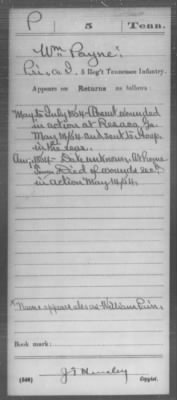 P 5 Tenn.
Wm Payne
Pri., Co. I, 5 Reg't Tennessee Infantry.
Appears on Returns as follows:
May to July 1864 Absent wounded
in action at Resaca, Ga.
May 14/64 and sent to Hosp.
in the rear.
Aug. 1864 - Date unknown, At
Died of wounds rec'd
in action May 14/64.
* Name appears also as William Pain.
Book mark:
(546) J T Hensley Copyist.